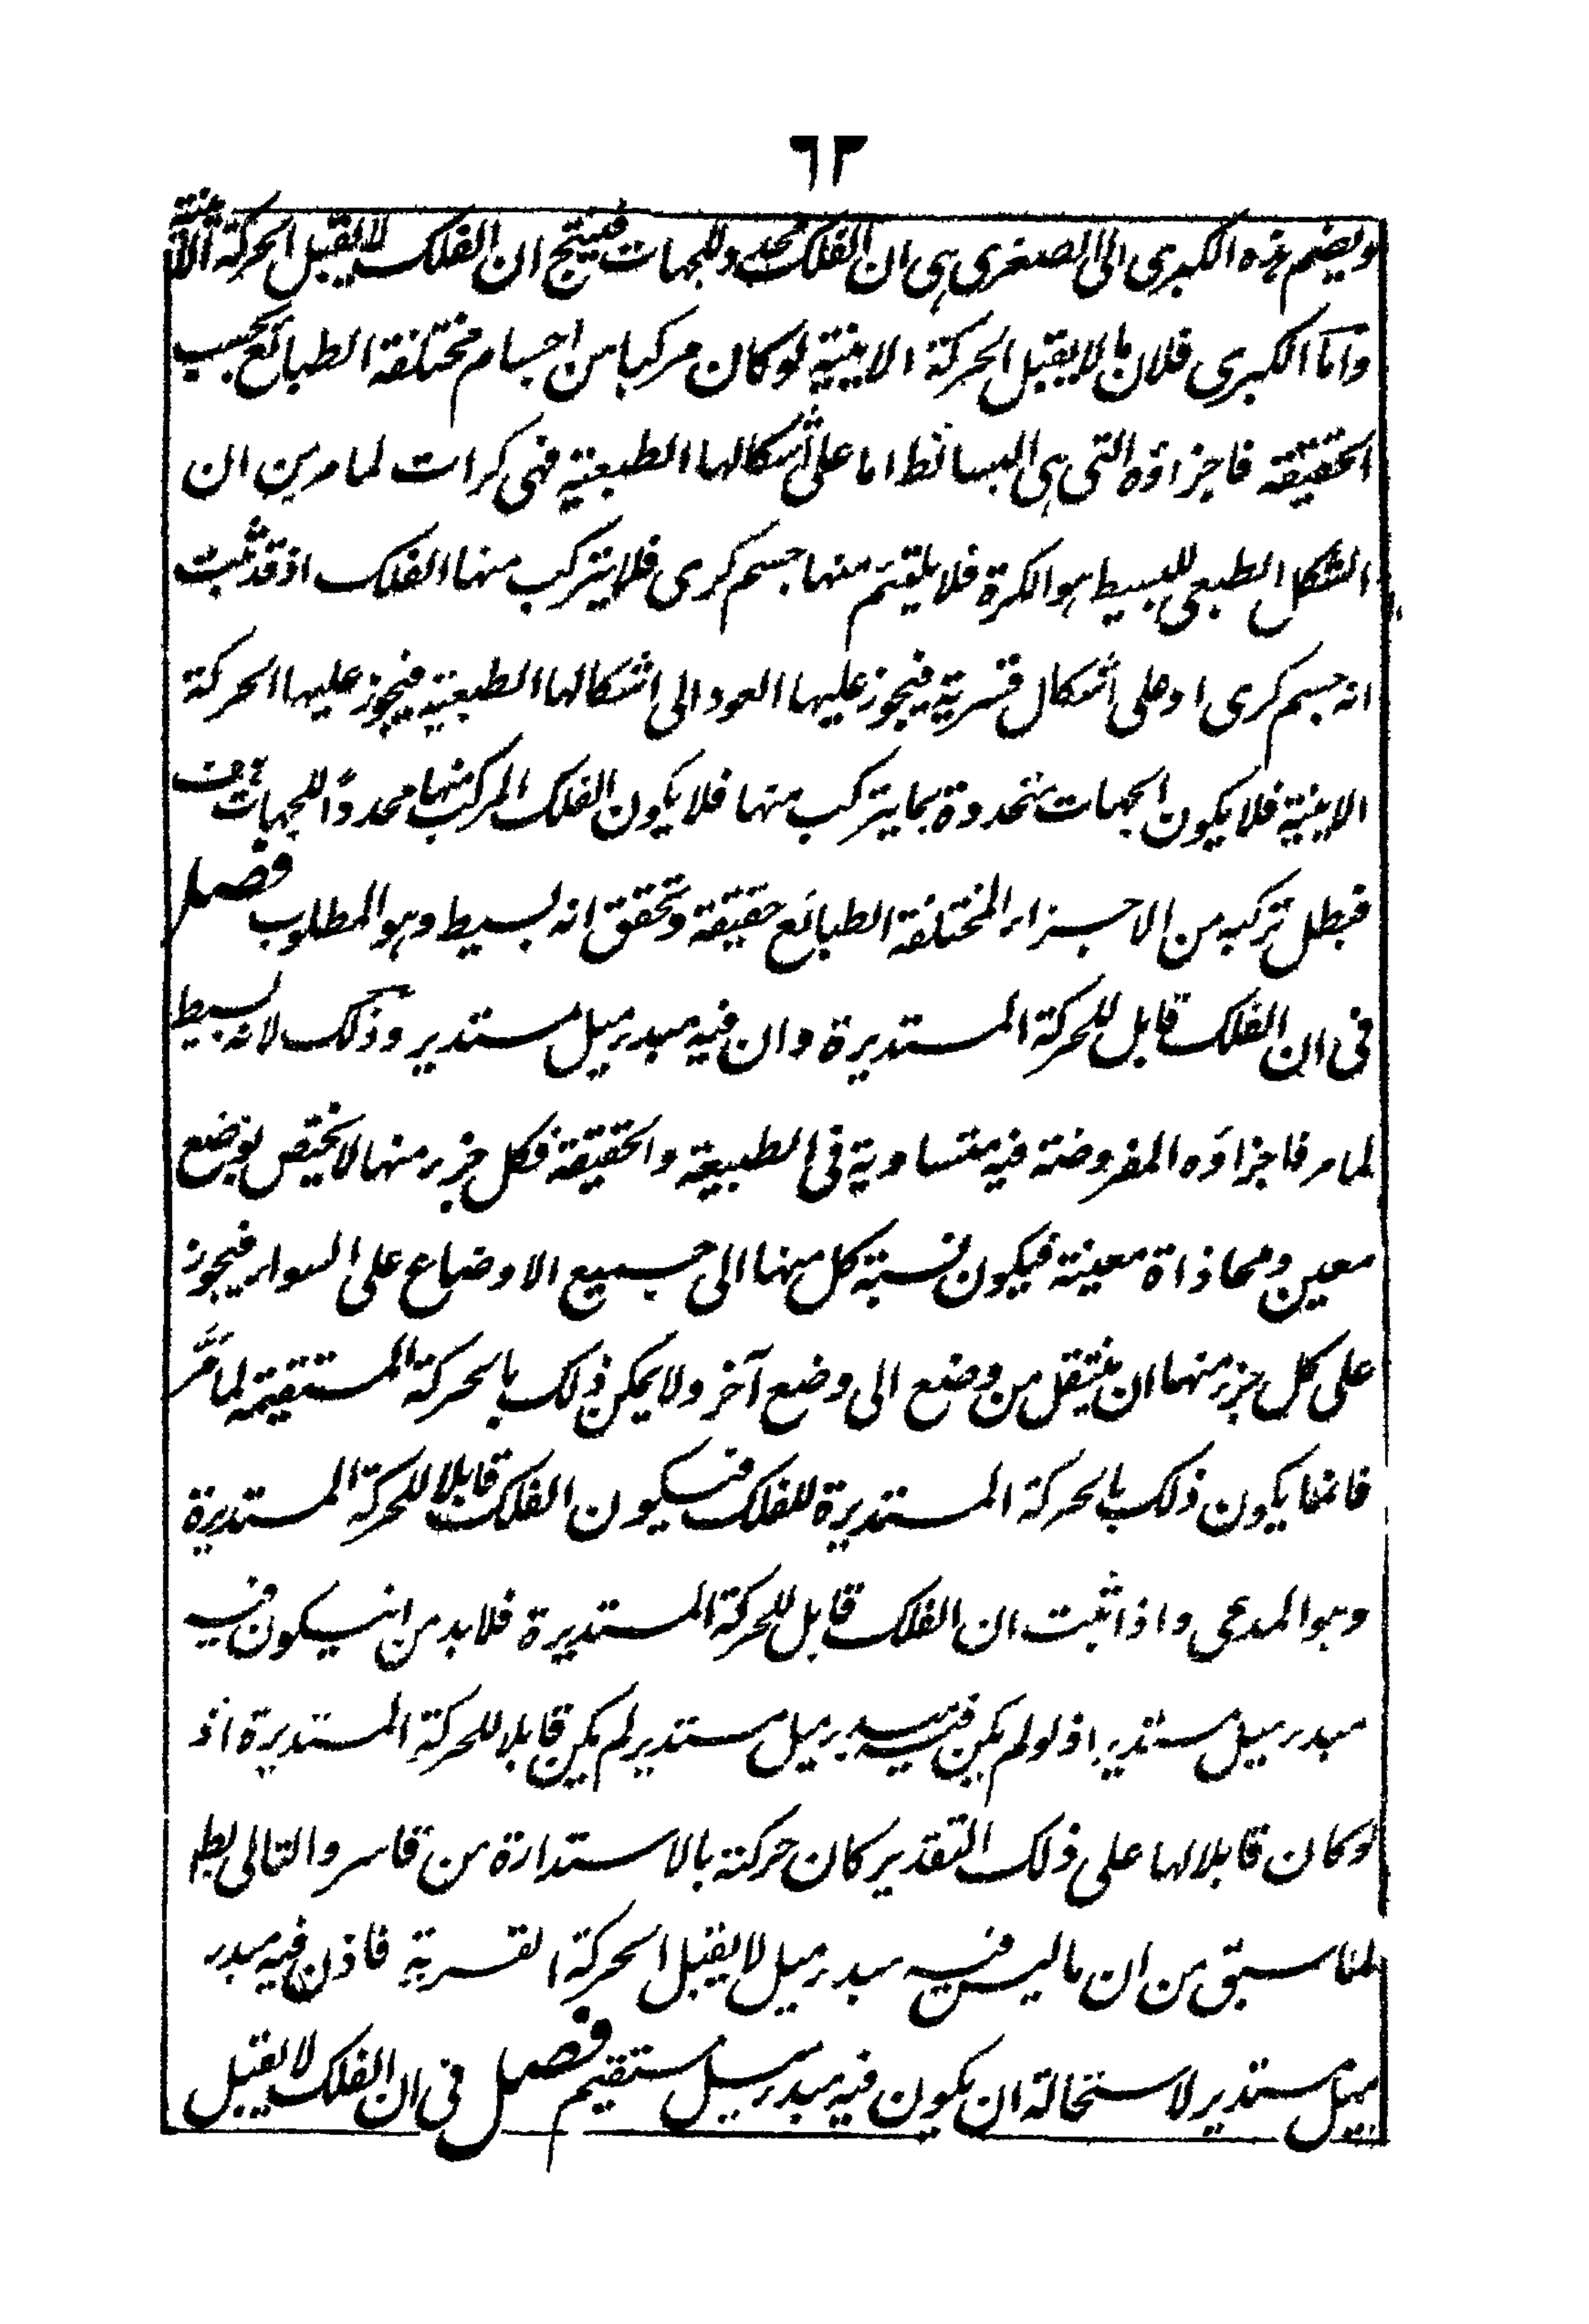 ٦٣
ويضم هذه الكبرى الى الصغرى هى ان الفلك محدد للجهات فينتج ان الفلك لا يقبل الحركة الاينية
واما الكبرى فلان ما لا يقبل الحركة الاينية لو كان مركبا من اجسام مختلفة الطبائع بحسب
الحقيقة فاجزاؤه التى هى البسائط اما على اشكالها الطبعية فهى كرات لما مر من ان
الشكل الطبعى للبسيط هو الكرة فلا يلتئم منها جسم كرى فلا يتركب منها الفلك اذ قد ثبت
انه جسم كرى او على اشكال قسرية فيجوز عليها العود الى اشكالها الطبعية فيجوز عليها الحركة
الاينية فلا يكون الجهات متحددة بما يتركب منها فلا يكون الفلك المركب منها محددا للجهات هف
فبطل تركبه من الاجزاء المختلفة الطبائع حقيقة وتحقق انه بسيط وهو المطلوب فصل
فى ان الفلك قابل للحركة المستديرة وان فيه مبدء ميل مستدير وذلك لانه بسيط
لما مر فاجزاؤه المفروضة فيه متساوية فى الطبيعة والحقيقة فكل جزء منها لا يختص بوضع
معين ومحاذاة معينة فيكون نسبة كل منها الى جميع الاوضاع على السواء فيجوز
على كل جزء منها ان ينتقل من وضع الى وضع آخر ولا يمكن ذلك بالحركة المستقيمة لما مر
فانما يكون ذلك بالحركة المستديرة للفلك فيكون الفلك قابلا للحركة المستديرة
وهو المدعى واذا ثبت ان الفلك قابل للحركة المستديرة فلا بد من ان يكون فيه
مبدء ميل مستدير اذ لو لم يكن فيه مبدء ميل مستدير لم يكن قابلا للحركة المستديرة اذ
لو كان قابلا لها على ذلك التقدير كان حركته بالاستدارة من قاسر والتالى بط
لما سبق من ان ما ليس فيه مبدء ميل لا يقبل الحركة القسرية فاذن فيه مبدء
ميل مستدير لاستحالة ان يكون فيه مبدء ميل مستقيم فصل فى ان الفلك لا يقبل